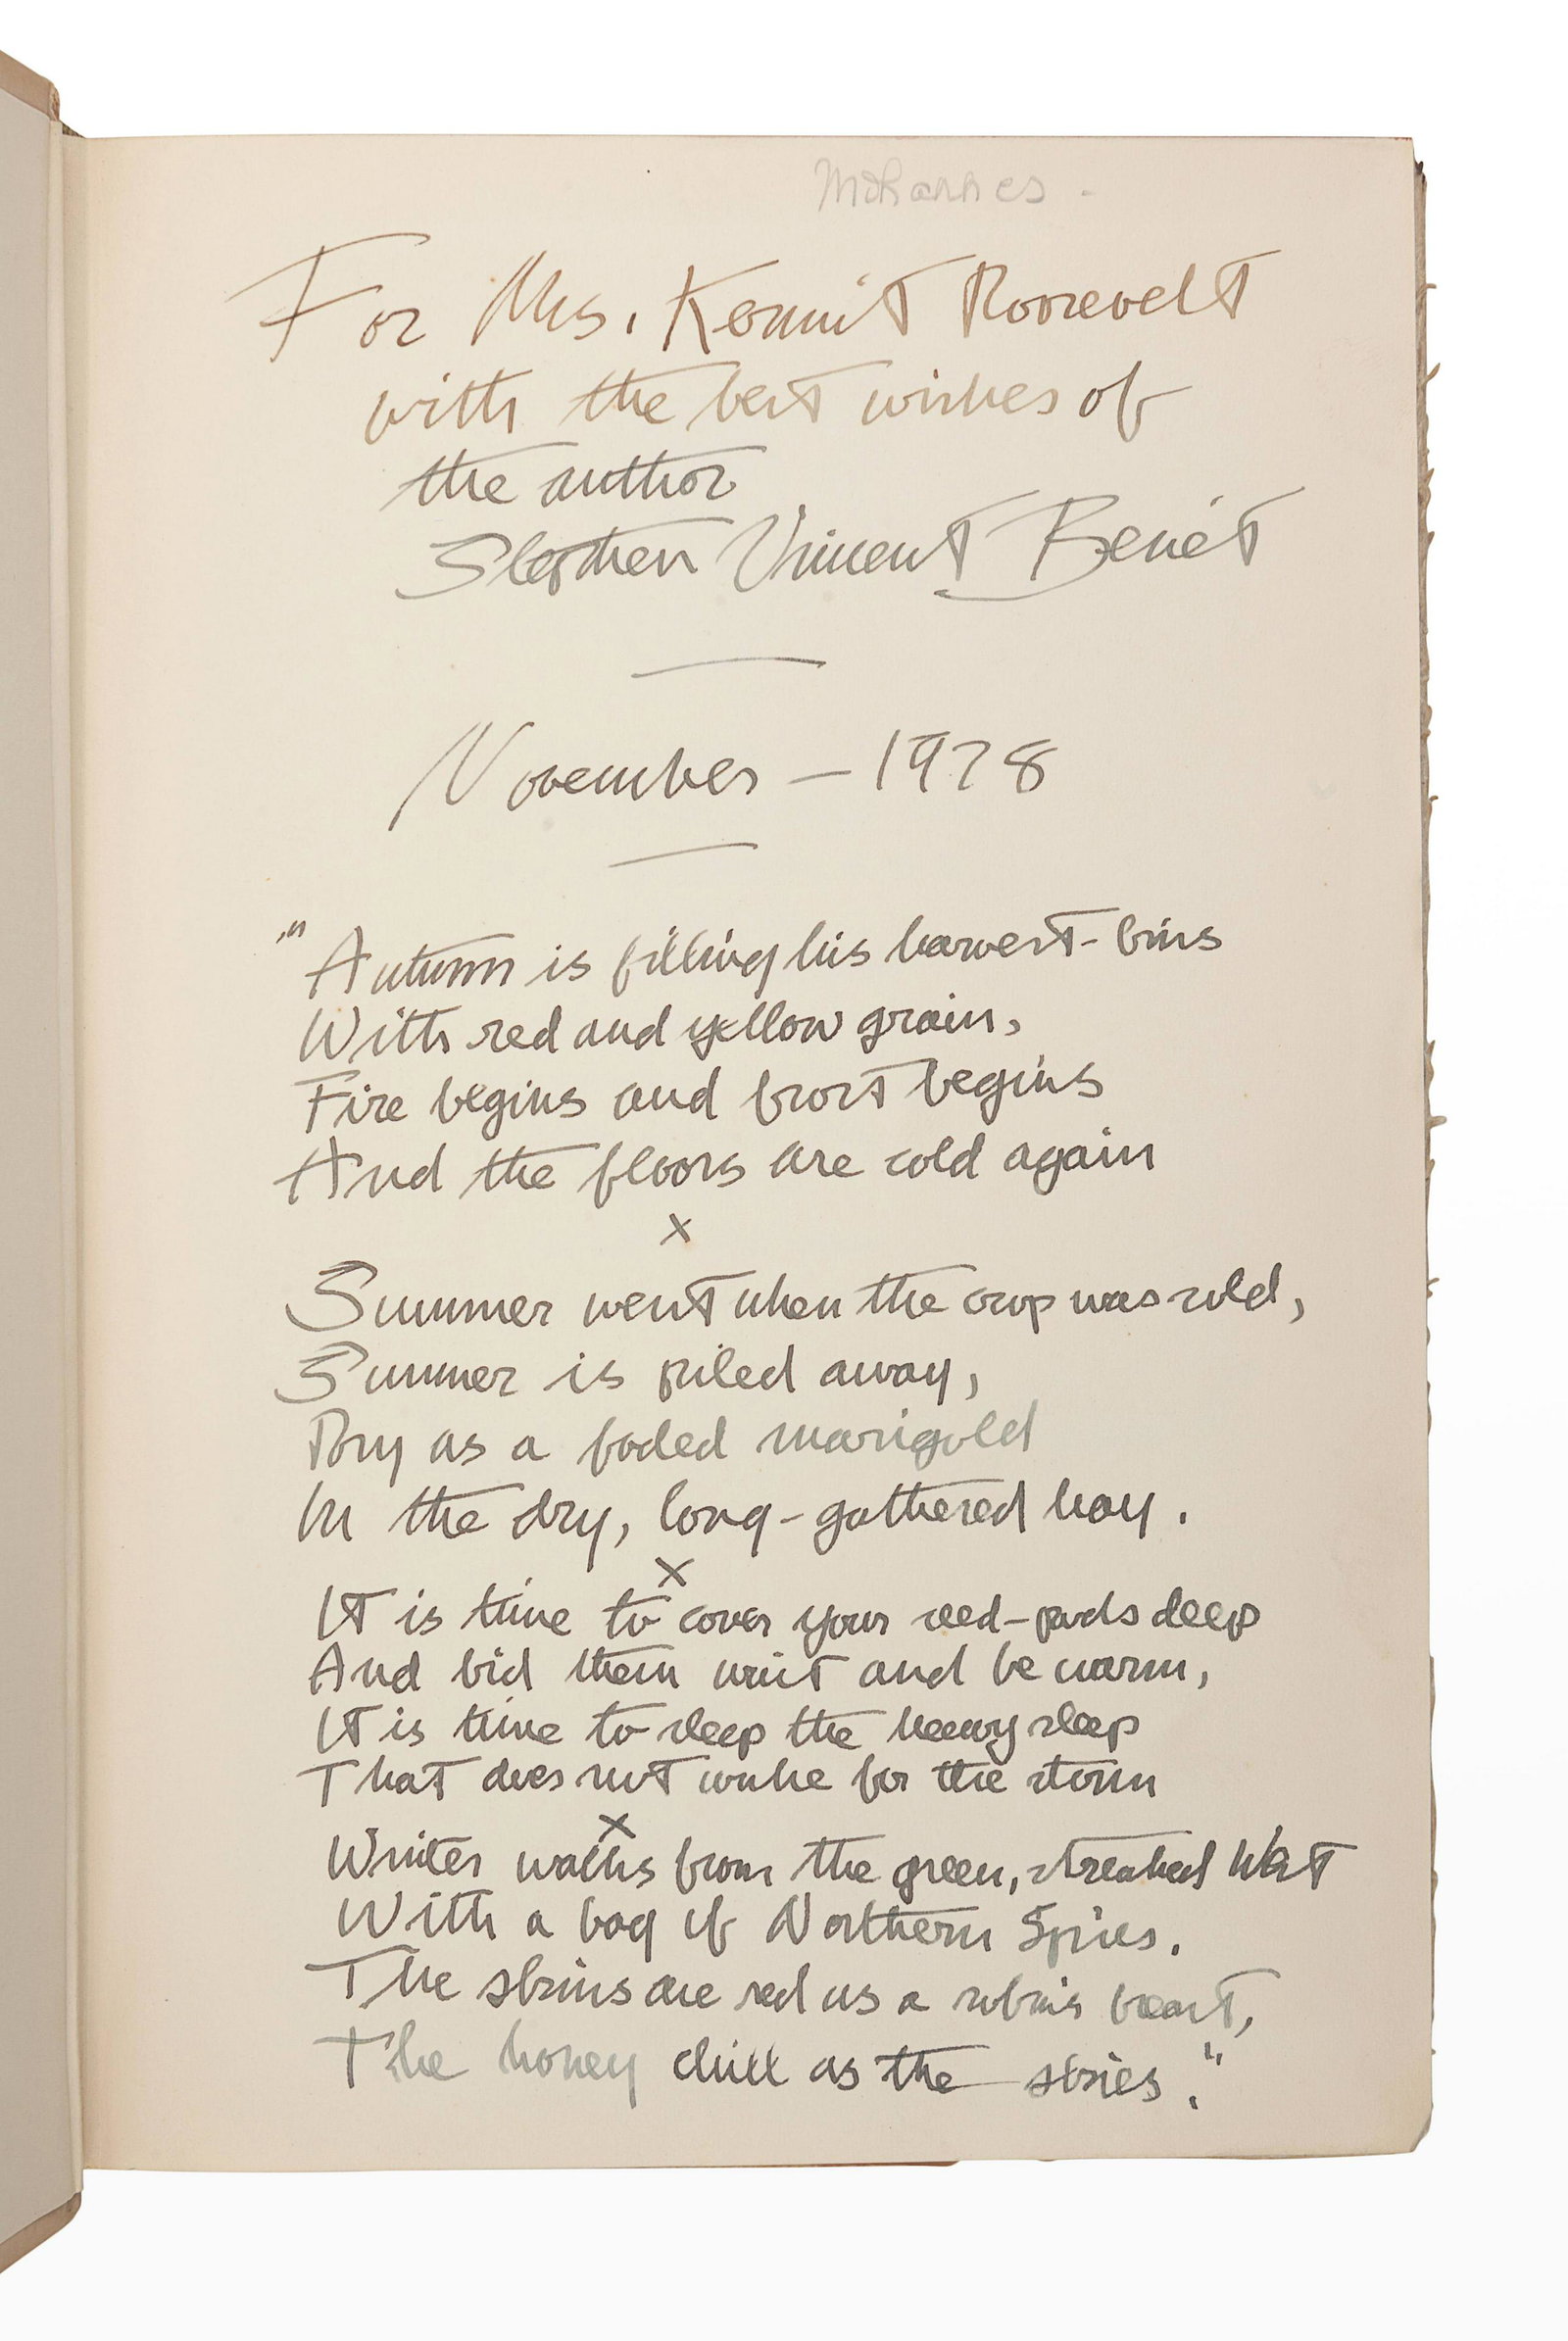 For Mrs. Kermit Roosevelt
with the best wishes of
the author
Stephen Vincent Benét
November – 1928
"Autumn is filling his harvest-bins
With red and yellow grain,
Fire begins and frost begins
And the floors are cold again
x
Summer went when the crop was sold,
Summer is piled away,
Dry as a faded marigold
In the dry, long-gathered hay.
x
It is time to cover your seed-pods deep
And bid them wait and be warm,
It is time to sleep the heavy sleep
That does not wake for the storm
x
Winter walks from the green, streaked West
With a bag of Northern Spies.
The skins are red as a robin's breast,
The honey chill as the skies."